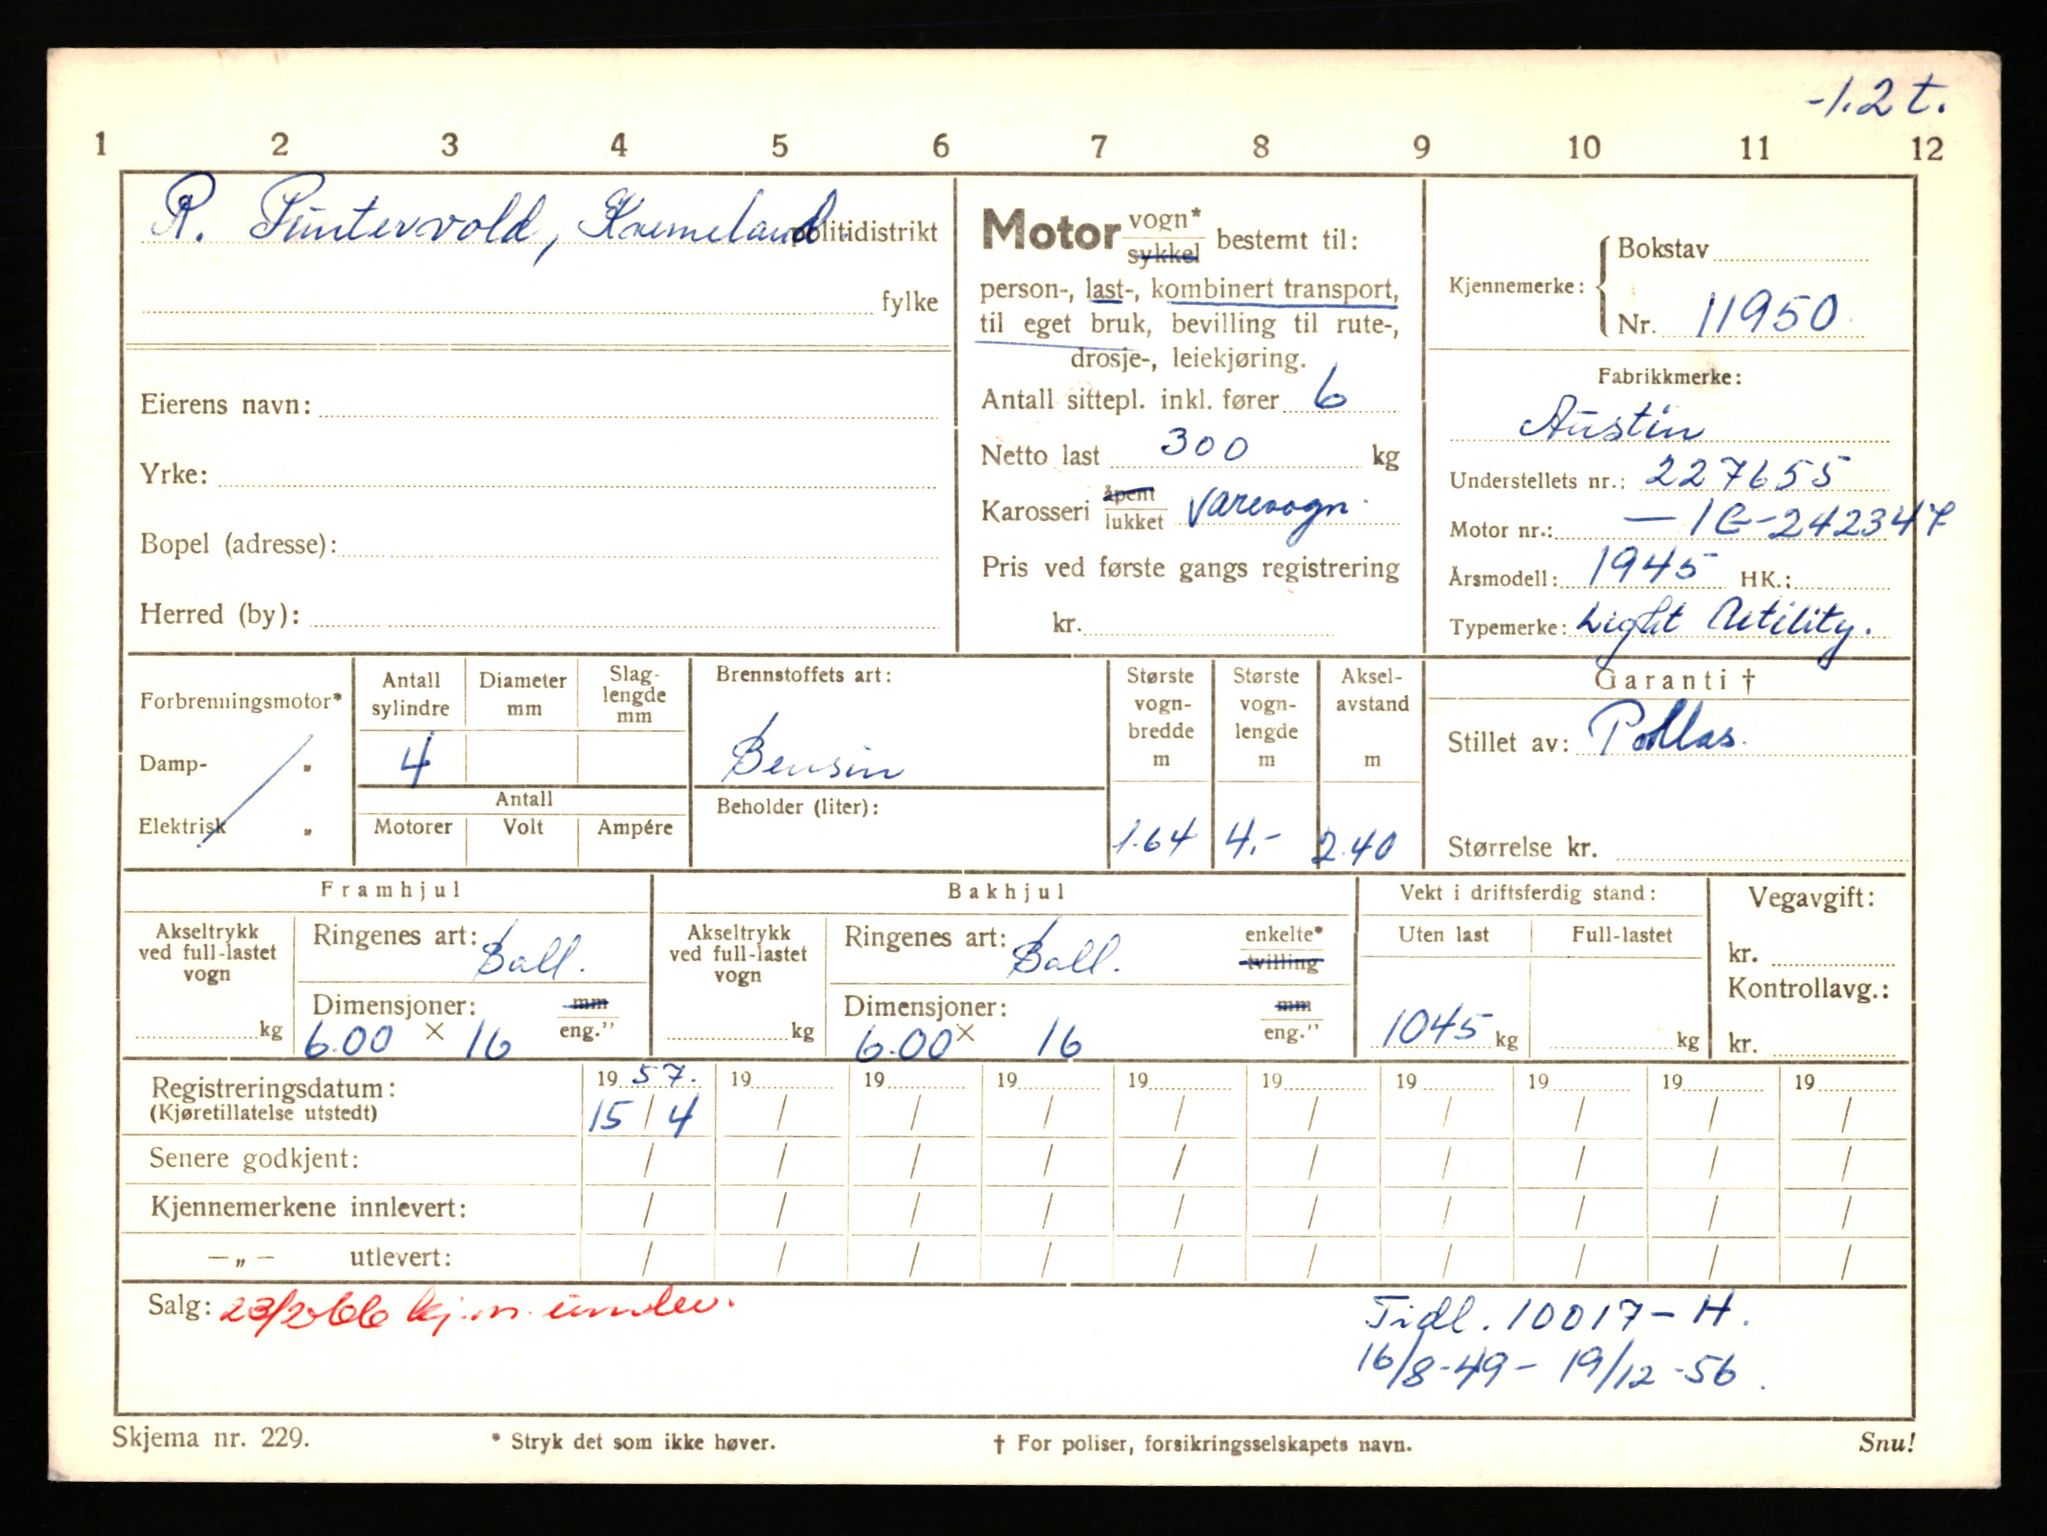 -1.2 t.
1 2 3 4 5 6 7 8 9 10 11 12
R. Puntervold, Kremeland politidistrikt
fylke
Eierens navn:
Yrke:
Bopel (adresse):
Herred (by):
Motor vogn* sykkel bestemt til:
person-, last-, kombinert transport,
til eget bruk, bevilling til rute-,
drosje-, leiekjøring.
Antall sittepl. inkl. fører 6
Netto last 300 kg
Karosseri åpent lukket varevogn.
Pris ved første gangs registrering
kr.
Kjennemerke: Bokstav
Nr. 11950
Fabrikkmerke:
Austin
Understellets nr.: 227655
Motor nr.: — 1G-242347
Årsmodell: 1945 HK.:
Typemerke: Light Utility.
Forbrenningsmotor*
Damp- "
Elektrisk "
Antall sylindre
Diameter mm
Slag-lengde mm
4
Antall
Motorer Volt Ampére
Brennstoffets art:
Bensin
Beholder (liter):
Største vogn-bredde m
1.64
Største vogn-lengde m
4.-
Aksel-avstand m
2.40
Garanti †
Stillet av: Pallas.
Størrelse kr.
Framhjul
Akseltrykk ved full-lastet vogn
kg
Ringenes art: Ball.
Dimensjoner: mm eng."
6.00 × 16
Bakhjul
Akseltrykk ved full-lastet vogn
kg
Ringenes art: Ball.
enkelte* tvilling
Dimensjoner: mm eng."
6.00 × 16
Vekt i driftsferdig stand:
Uten last Full-lastet
1045 kg kg
Vegavgift:
kr.
Kontrollavg.:
kr.
Registreringsdatum: 1957. 19 19 19 19 19 19 19 19 19
(Kjøretillatelse utstedt) 15/4 / / / / / / / / /
Senere godkjent: / / / / / / / / / /
Kjennemerkene innlevert: / / / / / / / / / /
—„— utlevert: / / / / / / / / / /
Salg: 23/2-66 kj.m. innlev.
Tidl. 10017-H.
16/8-49 - 19/12-56.
Skjema nr. 229.
* Stryk det som ikke høver.
† For poliser, forsikringsselskapets navn.
Snu!